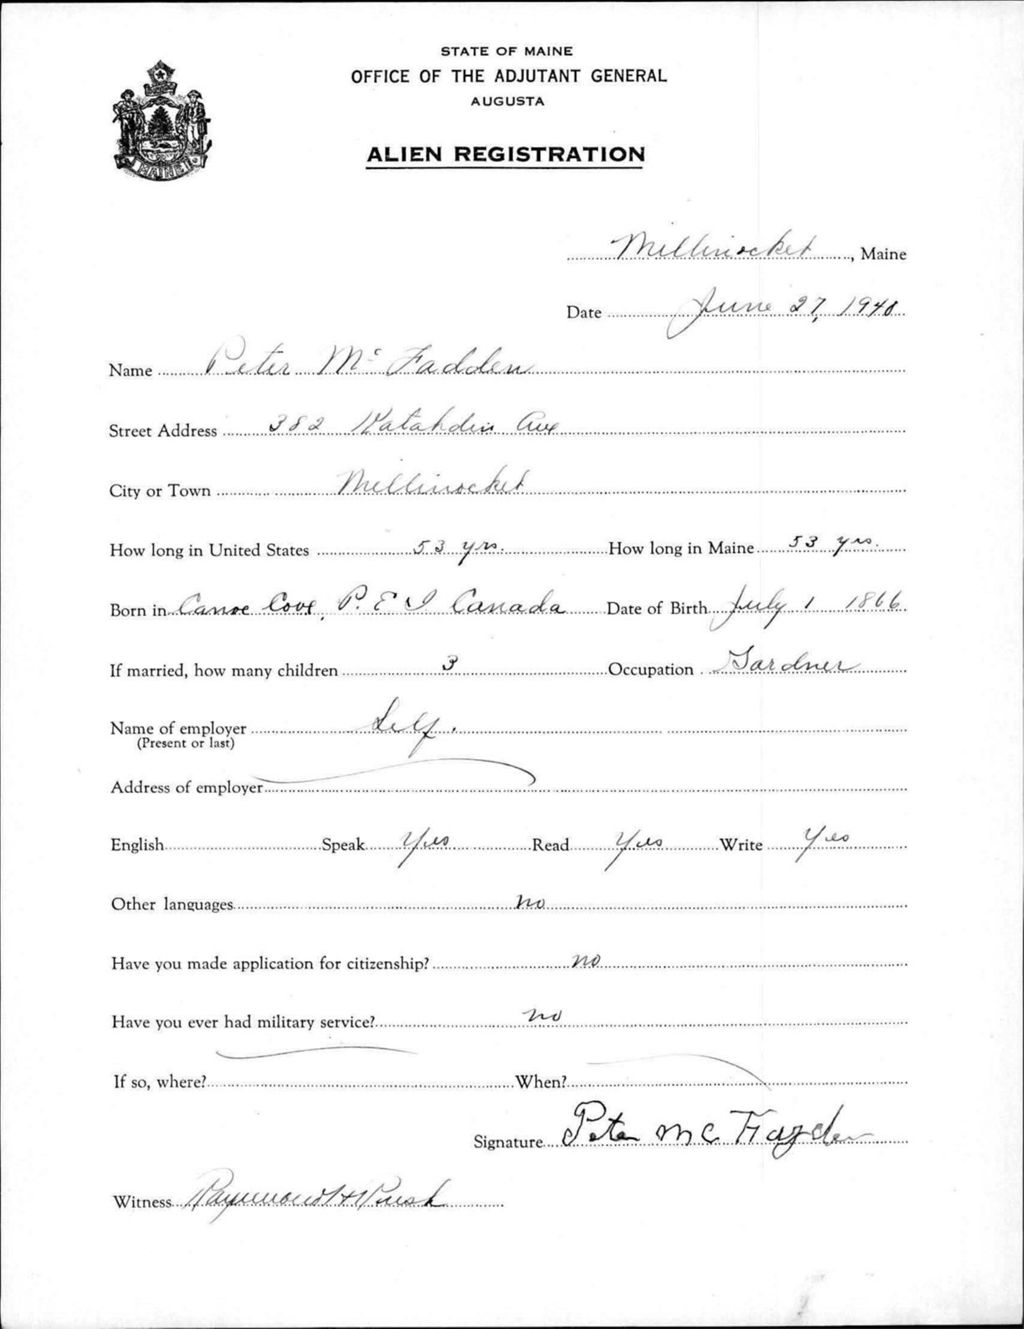 STATE OF MAINE
OFFICE OF THE ADJUTANT GENERAL
AUGUSTA
ALIEN REGISTRATION
MAINE
Millinocket, Maine
Date June 27, 1940
Name Peter Mc Fadden
Street Address 382 Katahdin Ave
City or Town Millinocket
How long in United States 53 yrs. How long in Maine 53 yrs.
Born in Canoe Cove, P. E I Canada Date of Birth July 1 1866
If married, how many children 3 Occupation Gardner
Name of employer Self.
(Present or last)
Address of employer
English Speak Yes Read Yes Write Yes
Other languages no
Have you made application for citizenship? no
Have you ever had military service? no
If so, where? When?
Signature Peter Mc
Witness Raymond